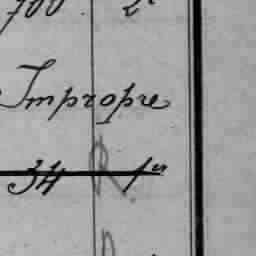 700 2e
Impropre
34 R 1er